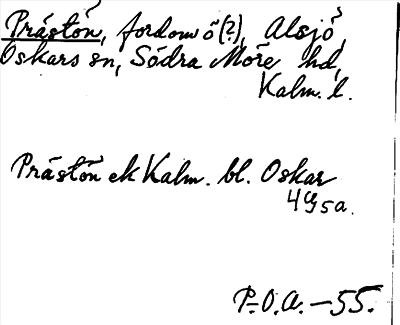 Prästön, fordom ö (?), Alsjö,
Oskars sn, Södra Möre hd,
Kalm. l.
Prästön ek Kalm. bl. Oskar
4 g 5 a.
P.O.A. – 55.